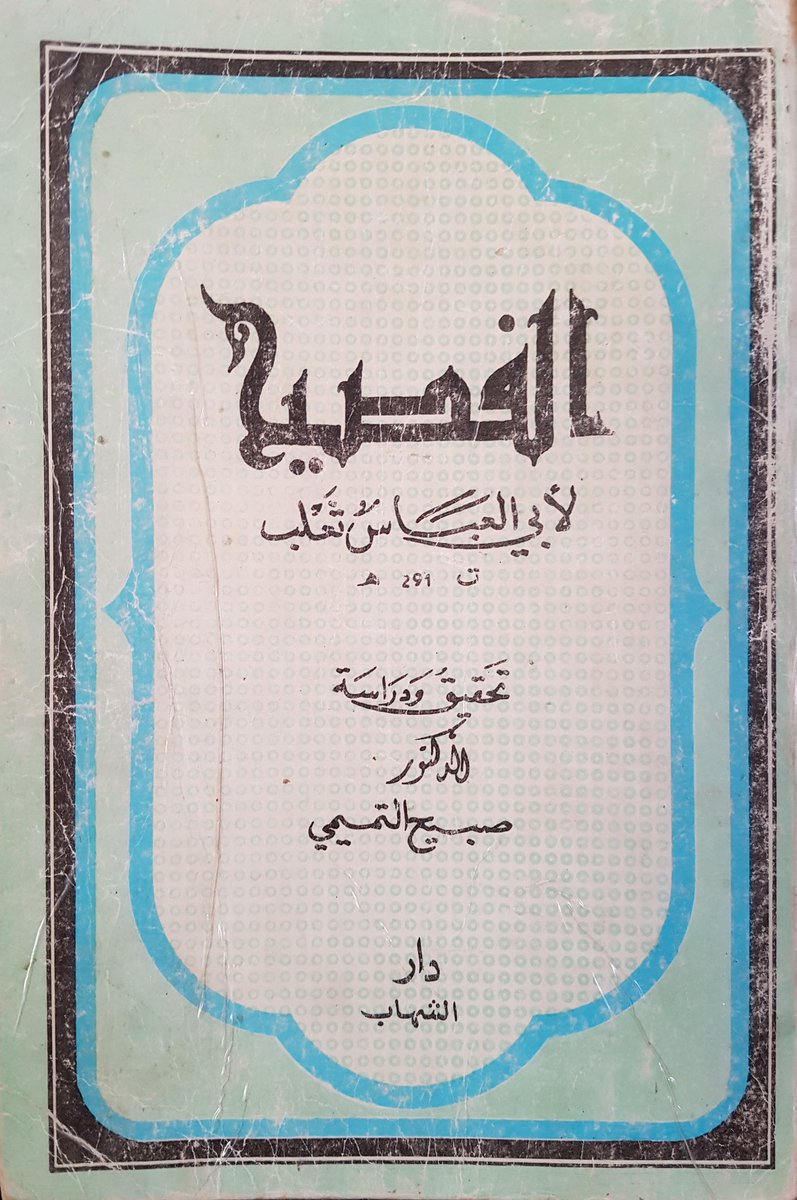 الفصيح
لأبي العباس ثعلب
ت 291 هـ
تحقيق ودراسة
الدكتور
صبيح التميمي
دار
الشهاب